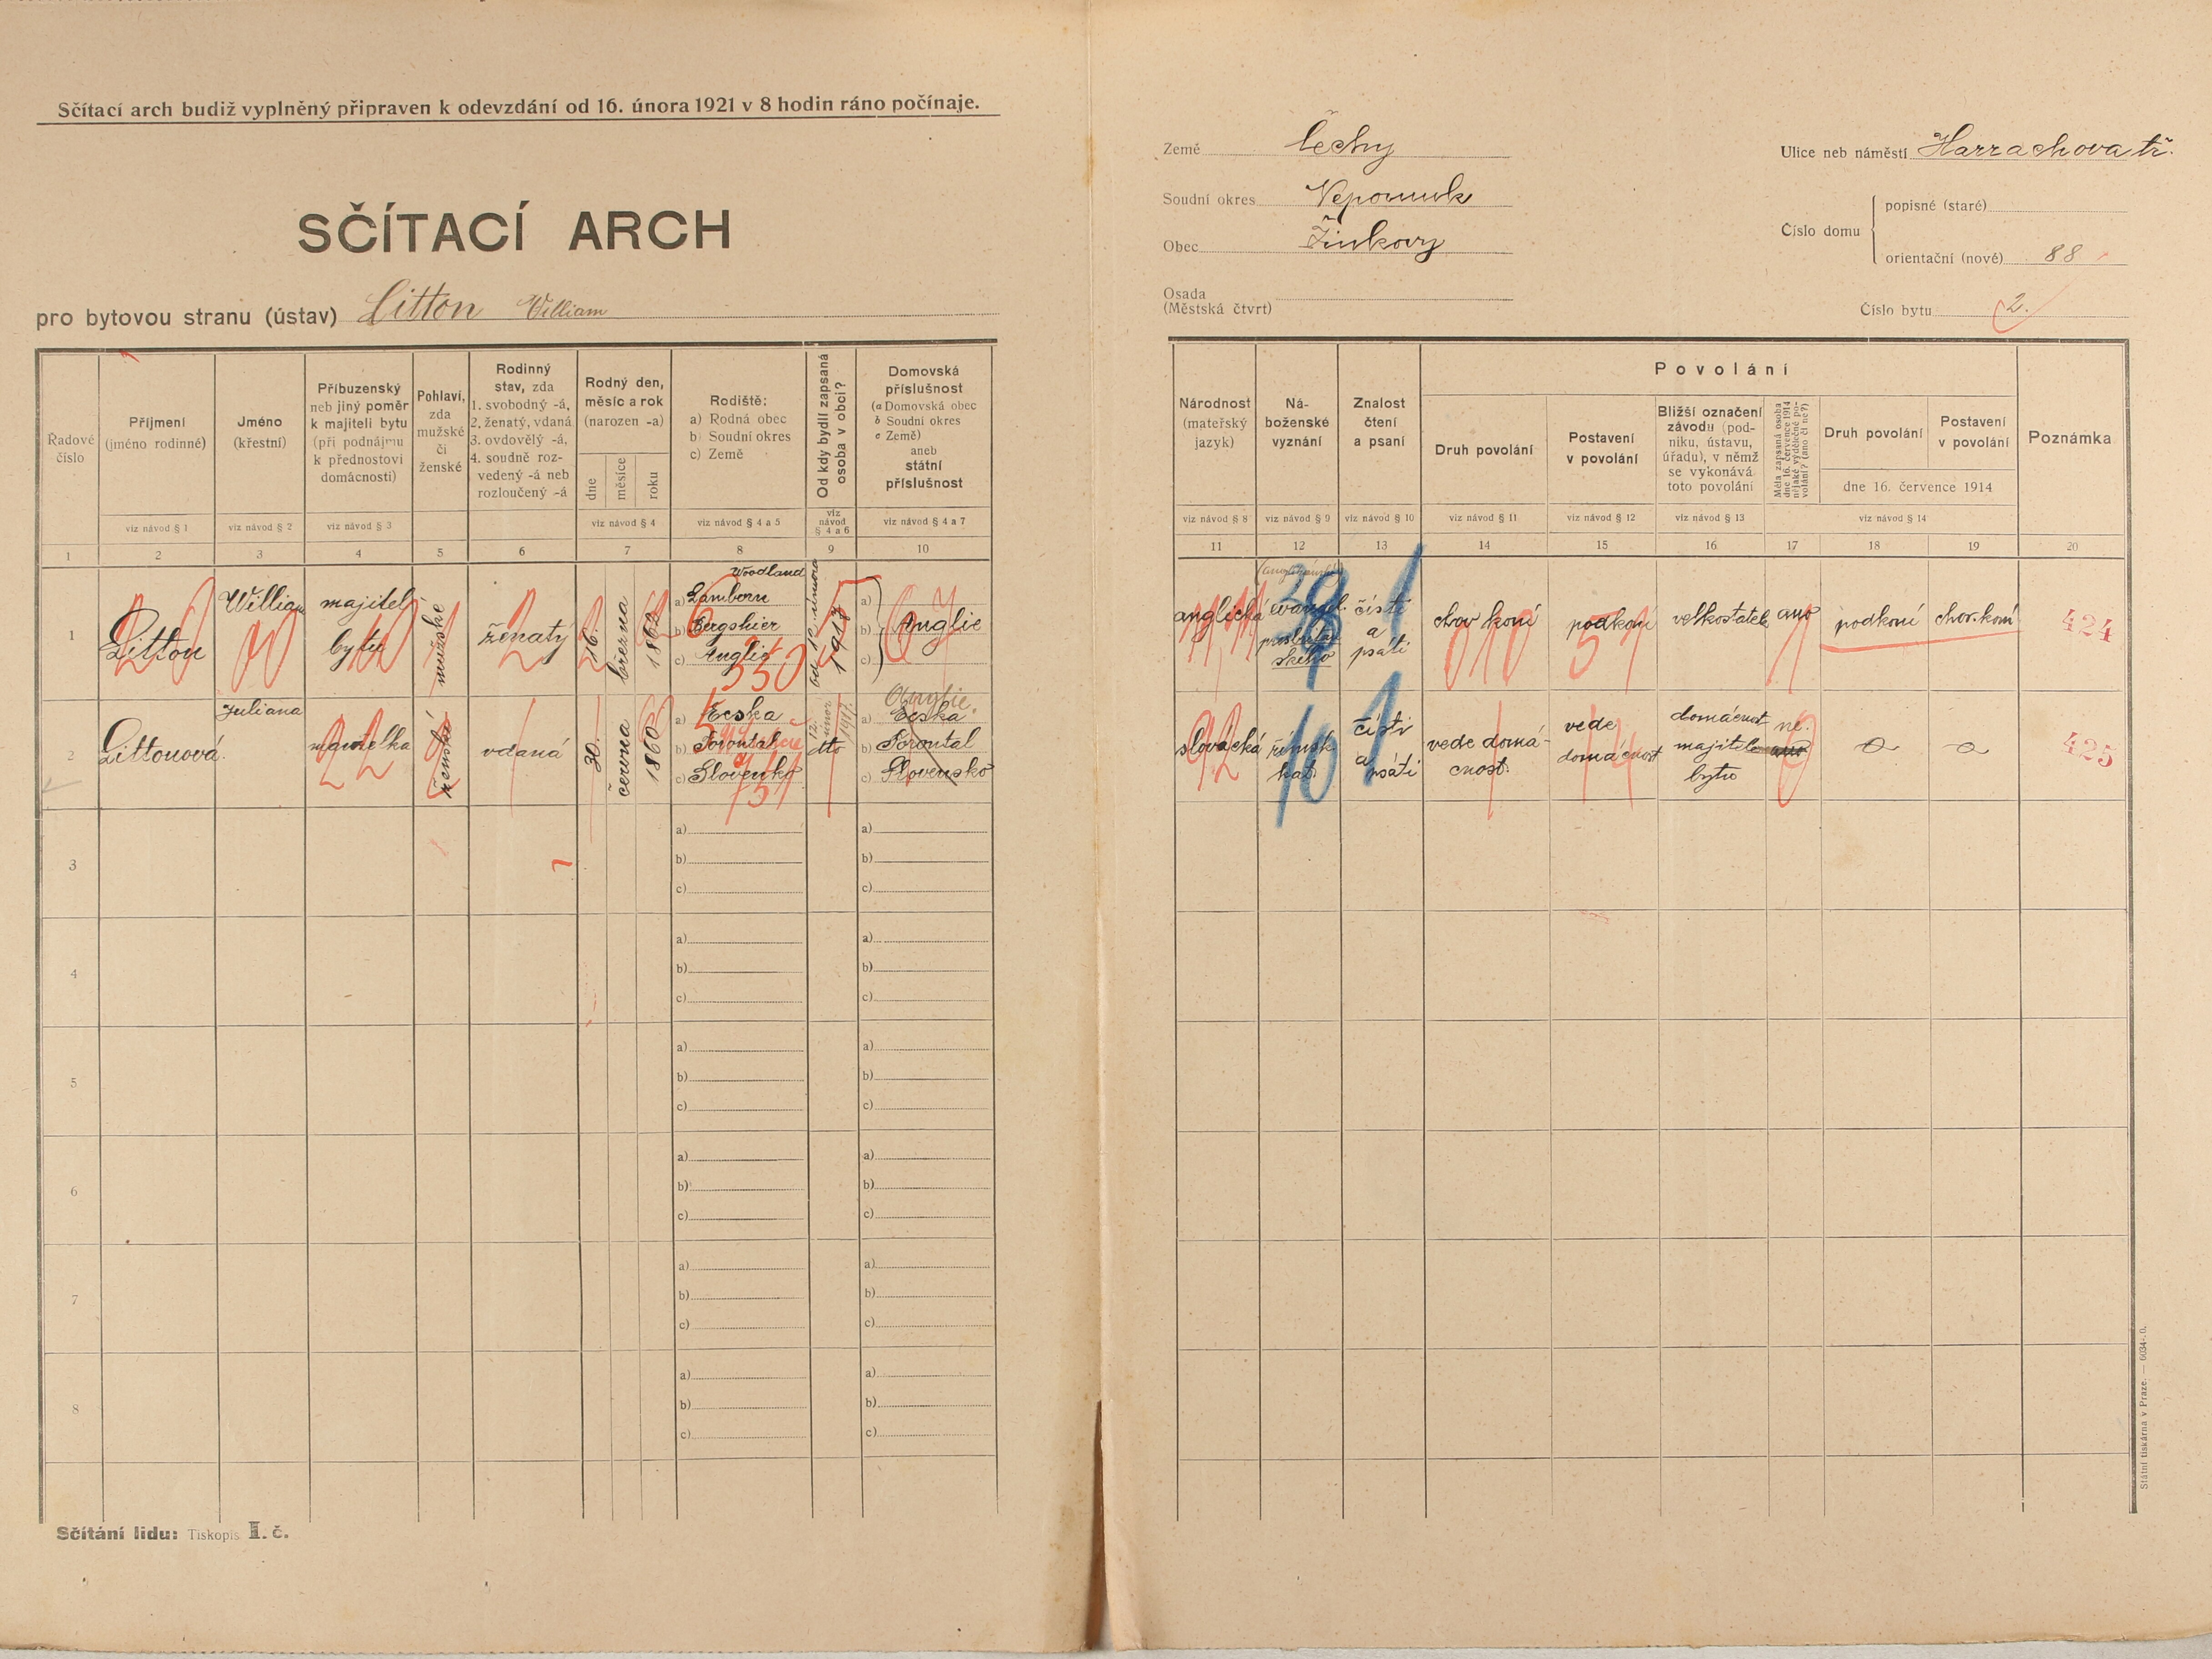 Sčítací arch budiž vyplněný připraven k odevzdání od 16. února 1921 v 8 hodin ráno počínaje.
SČÍTACÍ ARCH
pro bytovou stranu (ústav) Litton William
Země Čechy
Soudní okres Nepomuk
Obec Žinkovy
Osada
(Městská čtvrt)
Ulice neb náměstí Harrachova tř.
Číslo domu
popisné (staré)
orientační (nové) 88
Číslo bytu 2.
Řadové číslo
Příjmení (jméno rodinné)
Jméno (křestní)
Příbuzenský neb jiný poměr k majiteli bytu (při podnájmu k přednostovi domácnosti)
Pohlaví, zda mužské či ženské
Rodinný stav, zda 1. svobodný -á, 2. ženatý, vdaná 3. ovdovělý -á, 4. soudně rozvedený -á neb rozloučený -á
Rodný den, měsíc a rok (narozen -a)
dne měsíce roku
Rodiště: a) Rodná obec b) Soudní okres c) Země
Od kdy bydlí zapsaná osoba v obci?
Domovská příslušnost (a Domovská obec b Soudní okres c Země) aneb státní příslušnost
viz návod § 1 viz návod § 2 viz návod § 3 viz návod § 4 viz návod § 4 a 5 viz návod § 4 a 6 viz návod § 4 a 7
1 2 3 4 5 6 7 8 9 10
Národnost (mateřský jazyk)
Náboženské vyznání
Znalost čtení a psaní
Povolání
Druh povolání
Postavení v povolání
Bližší označení závodu (podniku, ústavu, úřadu), v němž se vykonává toto povolání
Měla zapsaná osoba dne 16. července 1914 nějaké výdělečné povolání? (ano či ne?)
Druh povolání
Postavení v povolání
dne 16. července 1914
Poznámka
viz návod § 8 viz návod § 9 viz návod § 10 viz návod § 11 viz návod § 12 viz návod § 13 viz návod § 14
11 12 13 14 15 16 17 18 19 20
1 Litton William majitel bytu mužské ženatý 16. března 1862
Woodland
a) Lamborn
b) Bergshier
c) Anglie
od 12. února 1917
a) b) c) Anglie
anglická evangel. čísti a psáti chov koní podkoní velkostatek ano podkoní chov. koní 424
2 Littonová Juliana manželka ženské vdaná 30. června 1860
a) Ečska
b) Torontal
c) Slovensko
dto 12. únor 1917.
Anglie.
a) Ečska
b) Torontal
c) Slovensko
slovacká římsk. kat. čísti a psáti vede domácnost. vede domácnost domácnost majitele bytu ne. 425
3 a) b) c) a) b) c)
4 a) b) c) a) b) c)
5 a) b) c) a) b) c)
6 a) b) c) a) b) c)
7 a) b) c) a) b) c)
8 a) b) c) a) b) c)
Sčítání lidu: Tiskopis I. č.
Státní tiskárna v Praze. — 6034-.0.